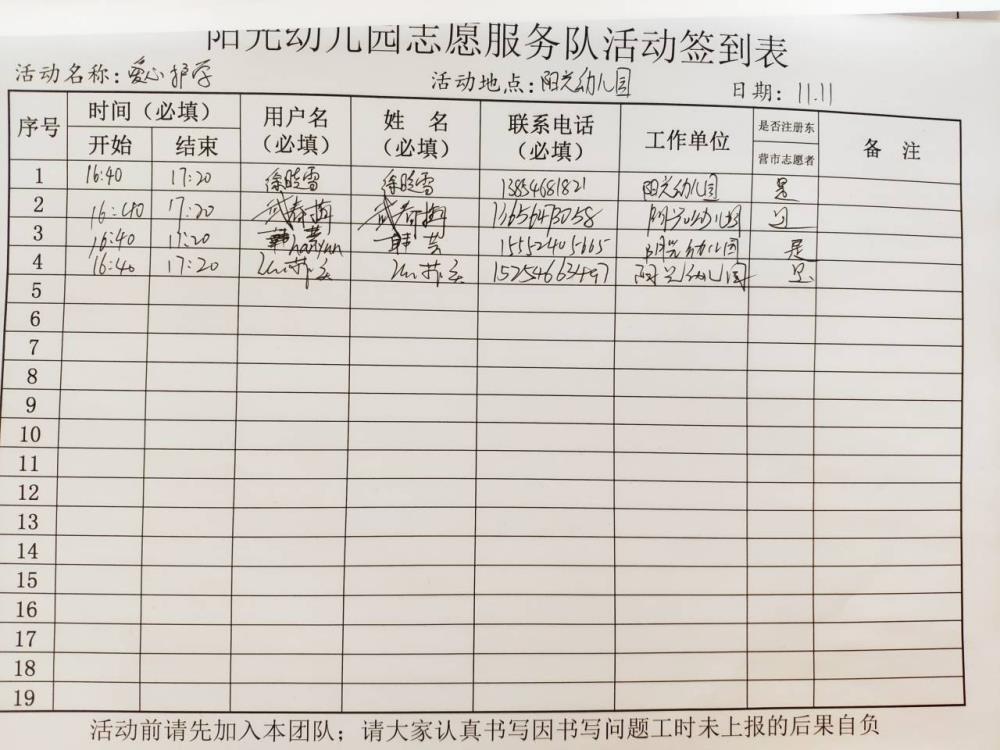 阳光幼儿园志愿服务队活动签到表
活动名称：爱心护学 活动地点：阳光幼儿园 日期：11.11
序号 时间（必填） 用户名（必填） 姓名（必填） 联系电话（必填） 工作单位 是否注册东营市志愿者 备注
开始 结束
1 16:40 17:20 徐晓雪 徐晓雪 13854681821 阳光幼儿园 是
2 16:40 17:20 武春梅 武春梅 13656473058 阳光幼儿园 是
3 16:40 17:20 韩芸hanyun 韩芸 15552405665 阳光幼儿园 是
4 16:40 17:20 15254663497 阳光幼儿园 是
5
6
7
8
9
10
11
12
13
14
15
16
17
18
19
活动前请先加入本团队；请大家认真书写因书写问题工时未上报的后果自负